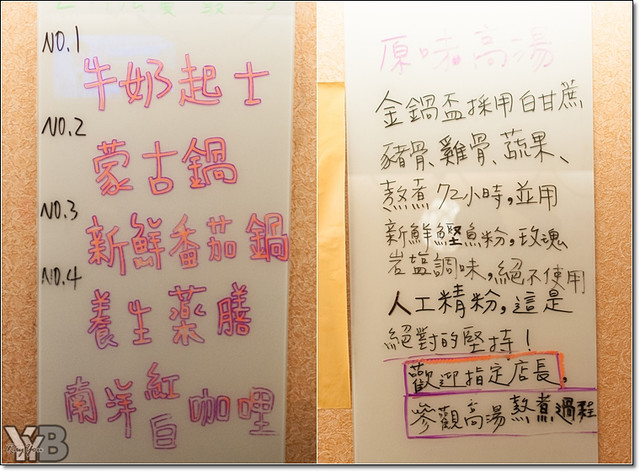 NO.1
牛奶起士
NO.2
蒙古鍋
NO.3
新鮮番茄鍋
NO.4
養生藥膳
南洋紅白咖哩
原味高湯
金鍋盃採用白甘蔗
豬骨、雞骨、蔬果、
熬煮72小時，並用
新鮮鰹魚粉，玫瑰
岩盐調味，絕不使用
人工精粉，這是
絕對的堅持！
歡迎指定店長，
參觀高湯熬煮過程
YB